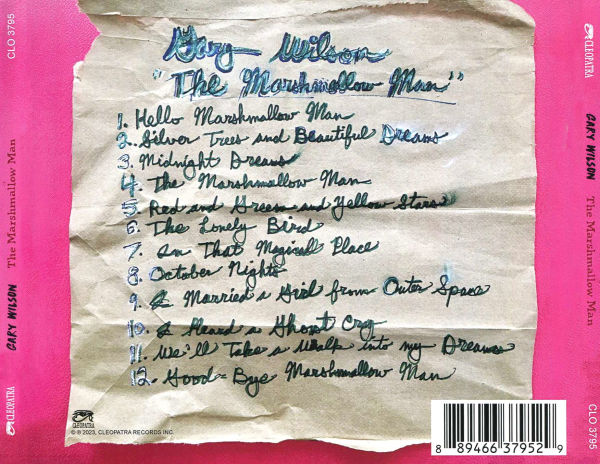 Gary Wilson
"The Marshmallow Man"
1. Hello Marshmallow Man
2. Silver Trees and Beautiful Dreams
3. Midnight Dreams
4. The Marshmallow Man
5. Red and Green and Yellow Stars
6. The Lonely Bird
7. In That Magical Place
8. October Nights
9. I Married a Girl from Outer Space
10. I Heard a Ghost Cry
11. We'll Take a Walk into my Dreams
12. Good-Bye Marshmallow Man
CLEOPATRA
© ℗ 2023, CLEOPATRA RECORDS INC.
8 89466 37952 9
CLEOPATRA GARY WILSON The Marshmallow Man CLO 3795
CLEOPATRA GARY WILSON The Marshmallow Man CLO 3795